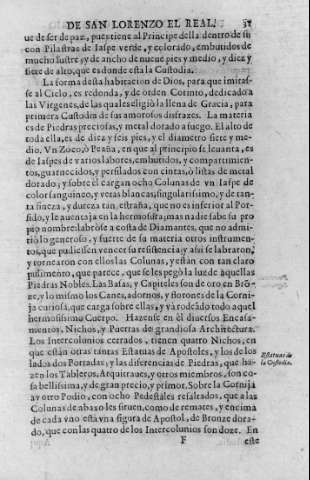 DE SAN LORENZO EL REAL. 51
ue de ser de paz, pues tiene al Principe della dentro de si
con Pilastras de Iaspe verde, y colorado, embutidos de
mucho lustre, y de ancho de nueue pies y medio, y diez y
siete de alto, que es donde està la Custodia.
La forma desta habitacion de Dios, para que imitas-
se al Cielo, es redonda, y de orden Corinto, dedicado a
las Virgenes, de las quales eligiò la llena de Gracia, para
primera Custodia de sus amorosos disfrazes. La materia
es de Piedras preciosas, y metal dorado a fuego. El alto de
toda ella, es de diez y seis pies, y el diametro siete y me-
dio. Vn Zoco, ò Peaña, en que al principio se leuanta, es
de Iaspes de varios labores, embutidos, y compartimien-
tos, guarnecidos, y perfilados con cintas, ò listas de metal
dorado; y sobre èl cargan ocho Colunas de vn Iaspe de
color sanguineo, y vetas blancas, singularissimo, y de tan-
ta fineza, y dureza tan estraña, que no es inferior al Por-
fido, y le auentaja en la hermosura; mas nadie sabe su pro
pio nombre: labròse a costa de Diamantes, que no admi-
tiò lo generoso, y fuerte de su materia otros instrumen-
tos, que pudiessen vencer su resistencia; y assi se labraron,
y tornearon con ellos las Colunas, y estàn con tan claro
pulimento, que parece, que se les pegò la luz de aquellas
Piedras Nobles. Las Basas, y Capiteles son de oro en Brõ-
ze, y lo mismo los Canes, adornos, y florones de la Corni-
ja curiosa, que carga sobre ellas, y và rodeãdo todo aquel
hermosissimo Cuerpo. Hazense en èl diuersos Encasa-
mentos, Nichos, y Puertas de grandiosa Architectura.
Los Intercolunios cerrados, tienen quatro Nichos, en
que estàn otras tantas Estatuas de Apostoles, y los de los
lados dos Portadas, y las diferencias de Piedras, que ha-
zen los Tableros, Arquitraues, y otros miembros, son co-
sa bellissima, y de gran precio, y primor. Sobre la Cornija
ay otro Podio, con ocho Pedestales resaltados, que a las
Colunas de abaxo les siruen, como de remates, y encima
de cada vno està vna figura de Apostol, de Bronze dora-
do, que con las quatro de los Intercolunios son doze. En
F este
Estatuas de
la Custodia.